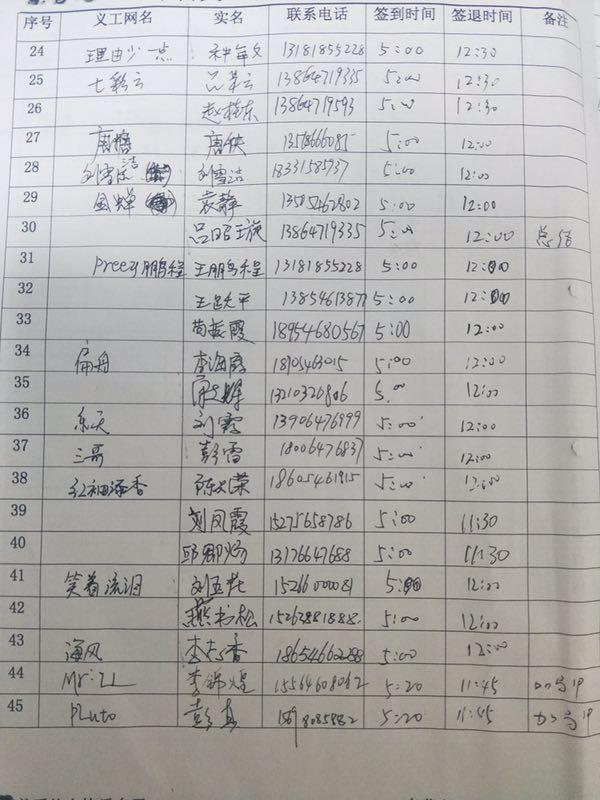 序号 义工网名 实名 联系电话 签到时间 签退时间 备注
24 理由少一点 13181855228 5:00 12:30
25 七彩云 吕彩云 13864719335 5:00 12:30
26 赵桂东 13864719593 5:00 12:30
27 唐糖 唐铁 5:00 12:00
28 刘雪洁 刘雪洁 18331585937 5:00 12:00
29 金蝉 袁静 13505462802 5:00 12:00
30 13864719335 5:00 12:00 总结
31 Preezy鹏程 王鹏程 13181855228 5:00 12:00
32 13854613877 5:00 12:00
33 苟振霞 18954680567 5:00 12:00
34 扁舟 李海霞 18705463015 5:00 12:00
35 13210326806 5:00 12:00
36 乐天 刘霞 13906476999 5:00 12:00
37 三哥 彭雪 18006476837 5:00 12:00
38 红袖添香 18605461915 5:00 12:00
39 刘凤霞 15275658786 5:00 11:30
40 13176647688 5:00 11:30
41 笑着流泪 15266000081 5:00 12:00
42 燕书松 15263881888 5:00 12:00
43 海风 李志香 18654662288 5:00 12:00
44 Mr:ZL 李锦煌 15564608062 5:20 11:45
45 Pluto 5:20 11:45